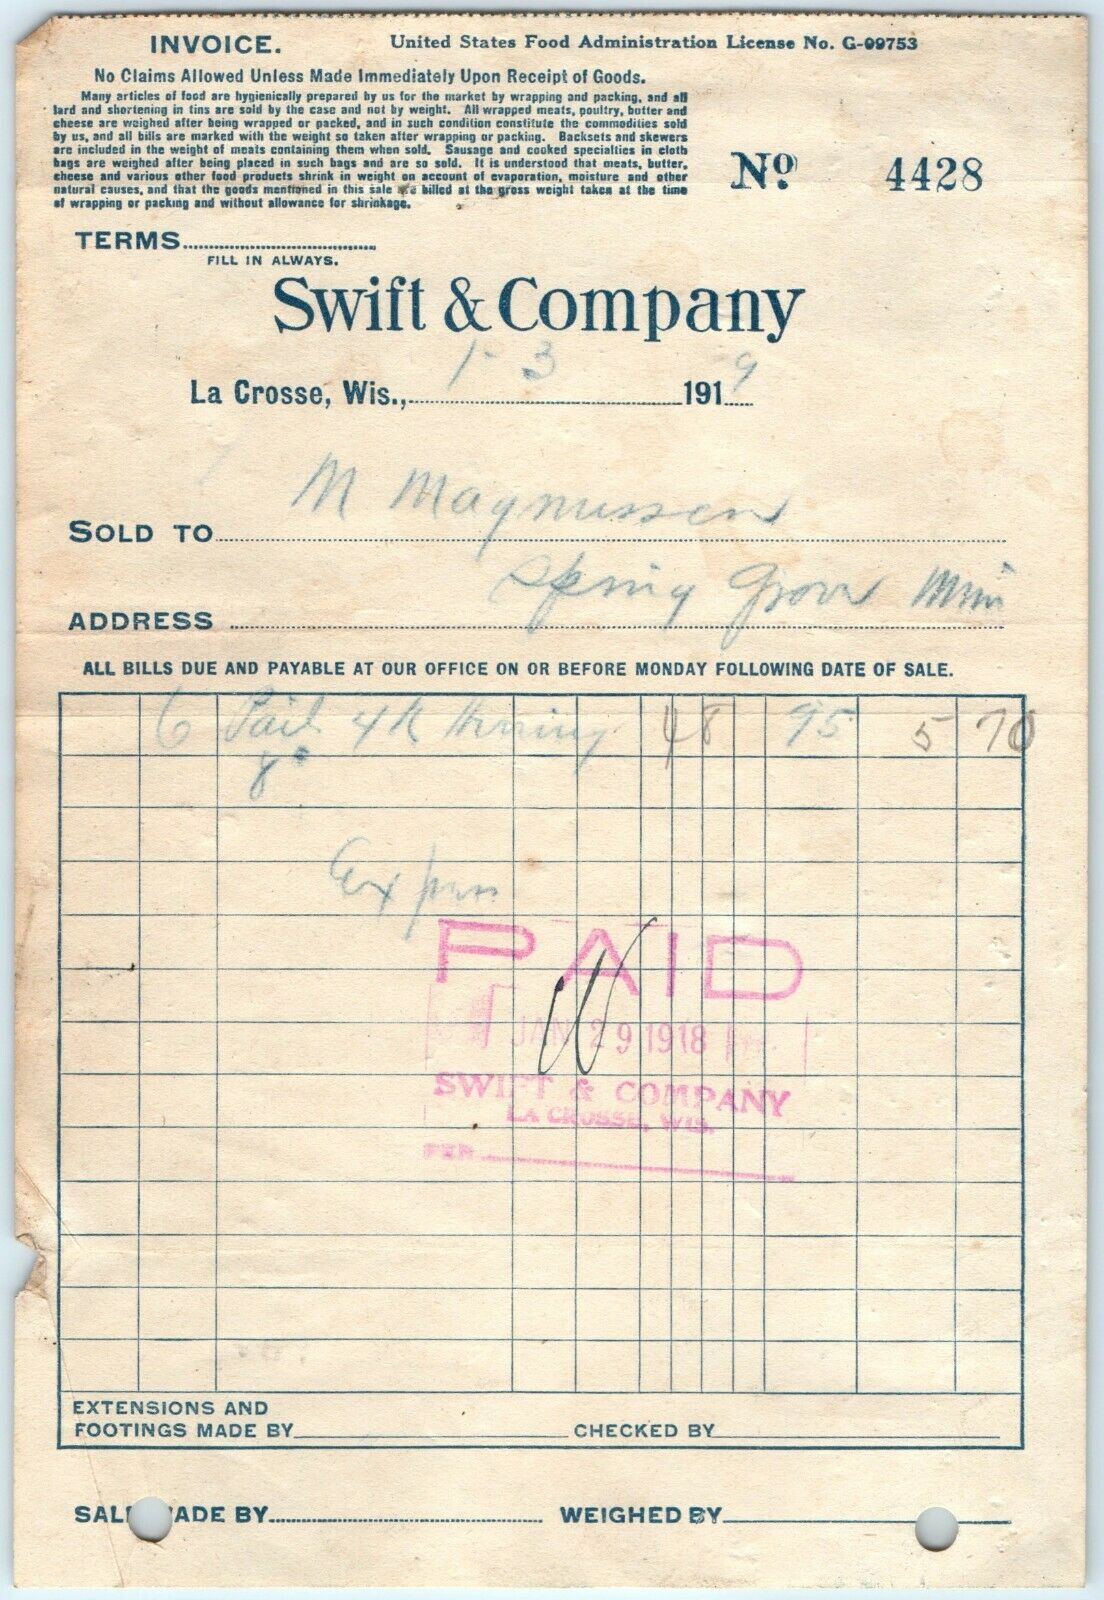 INVOICE.
United States Food Administration License No. G-09753
No Claims Allowed Unless Made Immediately Upon Receipt of Goods.
Many articles of food are hygienically prepared by us for the market by wrapping and packing, and all
lard and shortening in tins are sold by the case and not by weight. All wrapped meats, poultry, butter and
cheese are weighed after being wrapped or packed, and in such condition constitute the commodities sold
by us, and all bills are marked with the weight so taken after wrapping or packing. Backsets and skewers
are included in the weight of meats containing them when sold. Sausage and cooked specialties in cloth
bags are weighed after being placed in such bags and are so sold. It is understood that meats, butter,
cheese and various other food products shrink in weight on account of evaporation, moisture and other
natural causes, and that the goods mentioned in this sale are billed at the gross weight taken at the time
of wrapping or packing and without allowance for shrinkage.
No. 4428
TERMS
FILL IN ALWAYS.
Swift & Company
La Crosse, Wis., 1-3 1919
M Magnussen
SOLD TO
Spring Grove Minn
ADDRESS
ALL BILLS DUE AND PAYABLE AT OUR OFFICE ON OR BEFORE MONDAY FOLLOWING DATE OF SALE.
6 Pail Herring 48 95 5 70
PAID
JAN 29 1918
SWIFT & COMPANY
LA CROSSE, WIS.
PER
EXTENSIONS AND
FOOTINGS MADE BY CHECKED BY
SALE MADE BY WEIGHED BY